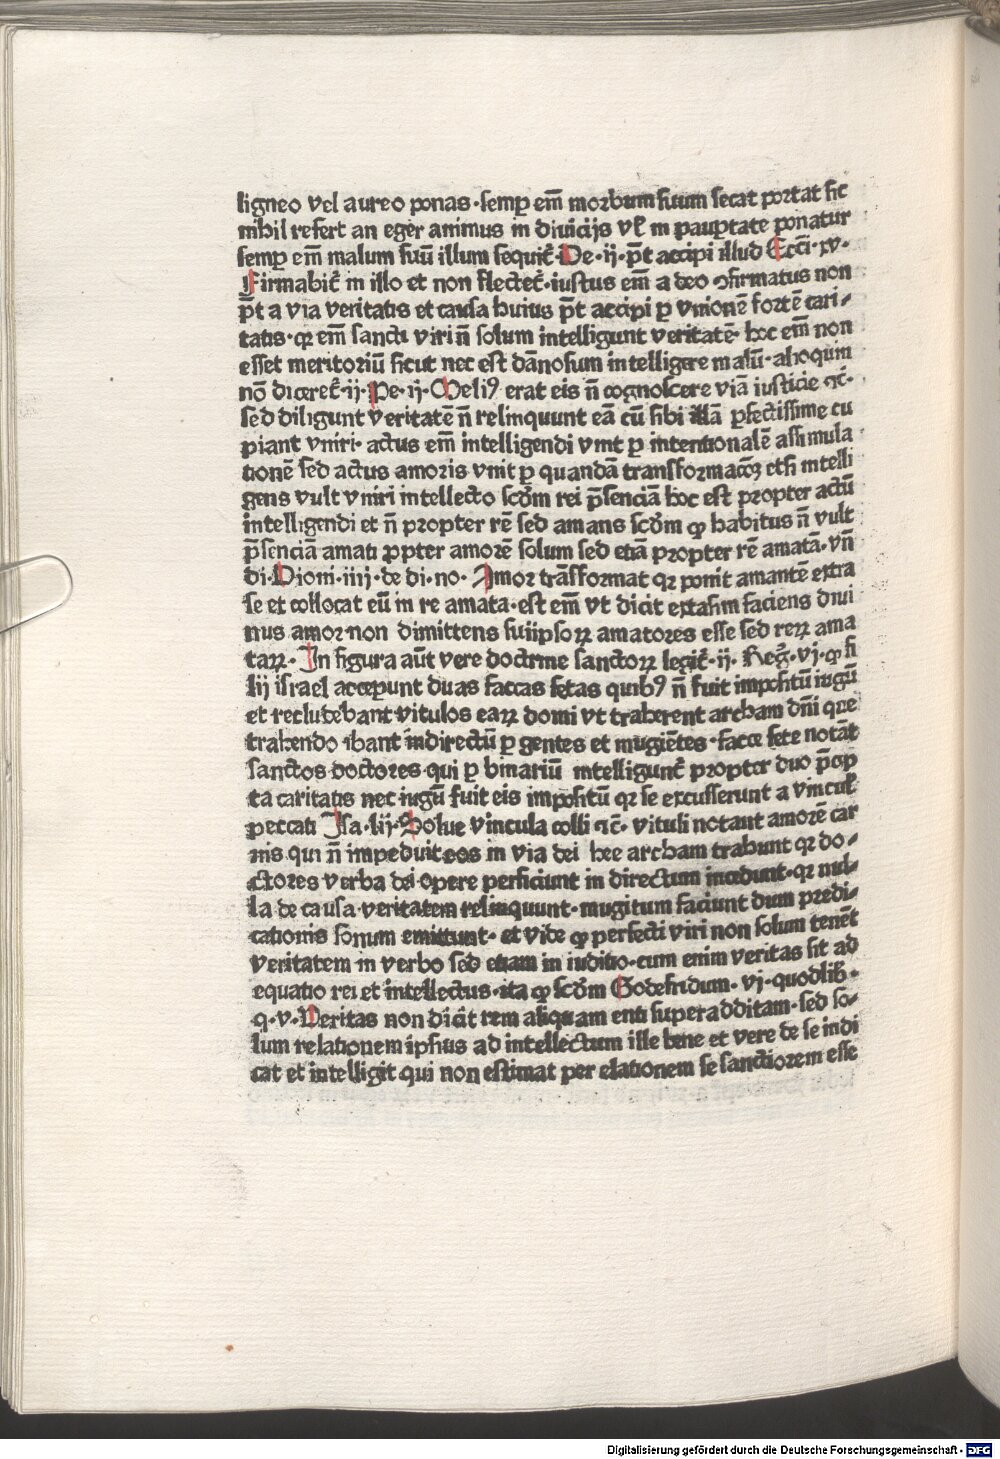 ligneo vel aureo ponas·semꝑ em̄ morbum suum secat portat sic
nihil refert an eger animus in diuicijs vl̓ in pauꝑtate ponatur
semꝑ em̄ malum suū illum sequit̓·De·ij·p̄t accipi illud Ecci·xv·
Firmabit̓ in illo et non flectet̓·iustus em̄ a deo ꝯfirmatus non
p̄t a via veritatis et causa huius p̄t accipi ꝑ vnionē fortē cari/
tatis·qꝛ em̄ sancti viri n̄ solum intelligunt veritatē·hoc em̄ non
esset meritoriū sicut nec est dānosum intelligere malū·alioquin
nō diceret̓·ij·Pe·ij·Meliꝰ erat eis n̄ cognoscere viā iusticie ⁊c̓·
sed diligunt veritatē n̄ relinquunt eā cū sibi illā ꝑfectissime cu
piant vniri·actus em̄ intelligendi vnit ꝑ intentionalē assimula
tionē sed actus amoris vnit ꝑ quandā transformacōꝫ etsi intelli
gens vult vniri intellecto scd̄m rei p̄senciā hoc est propter actū
intelligendi et n̄ propter rē sed amans scd̄m ꝙ habitus n̄ vult
p̄senciā amati ꝓpter amorē solum sed etiā propter rē amatā·vn̄
di·Dioni·iiij·de di·no·Amor trāsformat qꝛ ponit amantē extra
se et collocat eū in re amata·est em̄ vt dicit extasim faciens diui
nus amor non dimittens suiipsoꝝ amatores esse sed reꝝ ama
taꝝ·In figura aūt vere doctrine sanctoꝝ legit̓·ij·Reg̓·vj·ꝙ fi
lij israel acceperunt duas faccas fetas quibꝰ n̄ fuit impositū iugū
et recludebant vitulos eaꝝ domi vt traherent archam dn̄i que
trahendo ibant indirectū ꝑ gentes et mugiētes·facce fete notāt
sanctos doctores·qui ꝑ binariū intelligunt̓ propter duo p̄cep
ta caritatis nec iugū fuit eis impositū qꝛ se excusserunt a vincul̓
peccati Isa·lij·Solue vincula colli ⁊c̄·vituli notant amorē car
nis qui n̄ impediuit eos in via dei hee archam trahunt qꝛ do/
ctores verba dei opere perficiunt in directum incedunt·qꝛ nul/
la de causa veritatem relinquunt·mugitum faciunt dum predi/
cationis sonum emittunt·et vide ꝙ perfecti viri non solum tenēt
veritatem in verbo sed etiam in iuditio·cum enim veritas sit ad
equatio rei et intellectus·ita ꝙ scd̄m Godefridum·vj·quodlib̓·
q·v·Veritas non dicit rem aliquam enti superadditam·sed so/
lum relationem ipsius ad intellectum ille bene et vere de se indi
cat et intelligit qui non estimat per elationem se sanctiorem esse
Digitalisierung gefördert durch die Deutsche Forschungsgemeinschaft - DFG